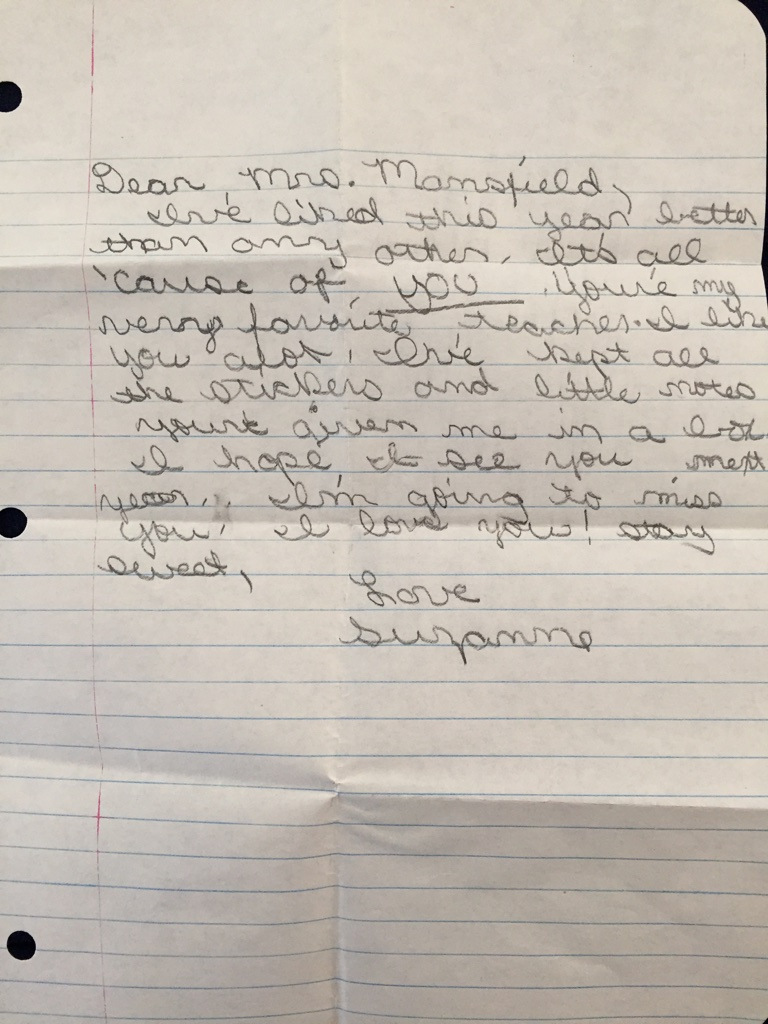 Dear Mrs. Mansfield,
I've liked this year better
than any other. It's all
'cause of you. You're my
very favorite teacher. I like
you alot. I've kept all
the stickers and little notes
you've given me in a box.
I hope I see you next
year. I'm going to miss
you. I love you! Stay
sweet,
Love
Suzanne